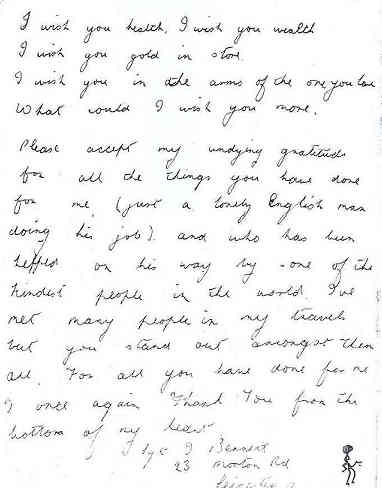 I wish you health, I wish you wealth
I wish you gold in store
I wish you in the arms of the one you love
What could I wish you more.
Please accept my undying gratitude
for all the things you have done
for me, (just a lonely English man
doing his job). and who has been
helped on his way by - one of the
kindest people in the world. I've
met many people in my travels
but you stand out amongst them
all. For all you have done for me
I once again Thank You from the
bottom of my heart
J Bennett
23 Morton Rd